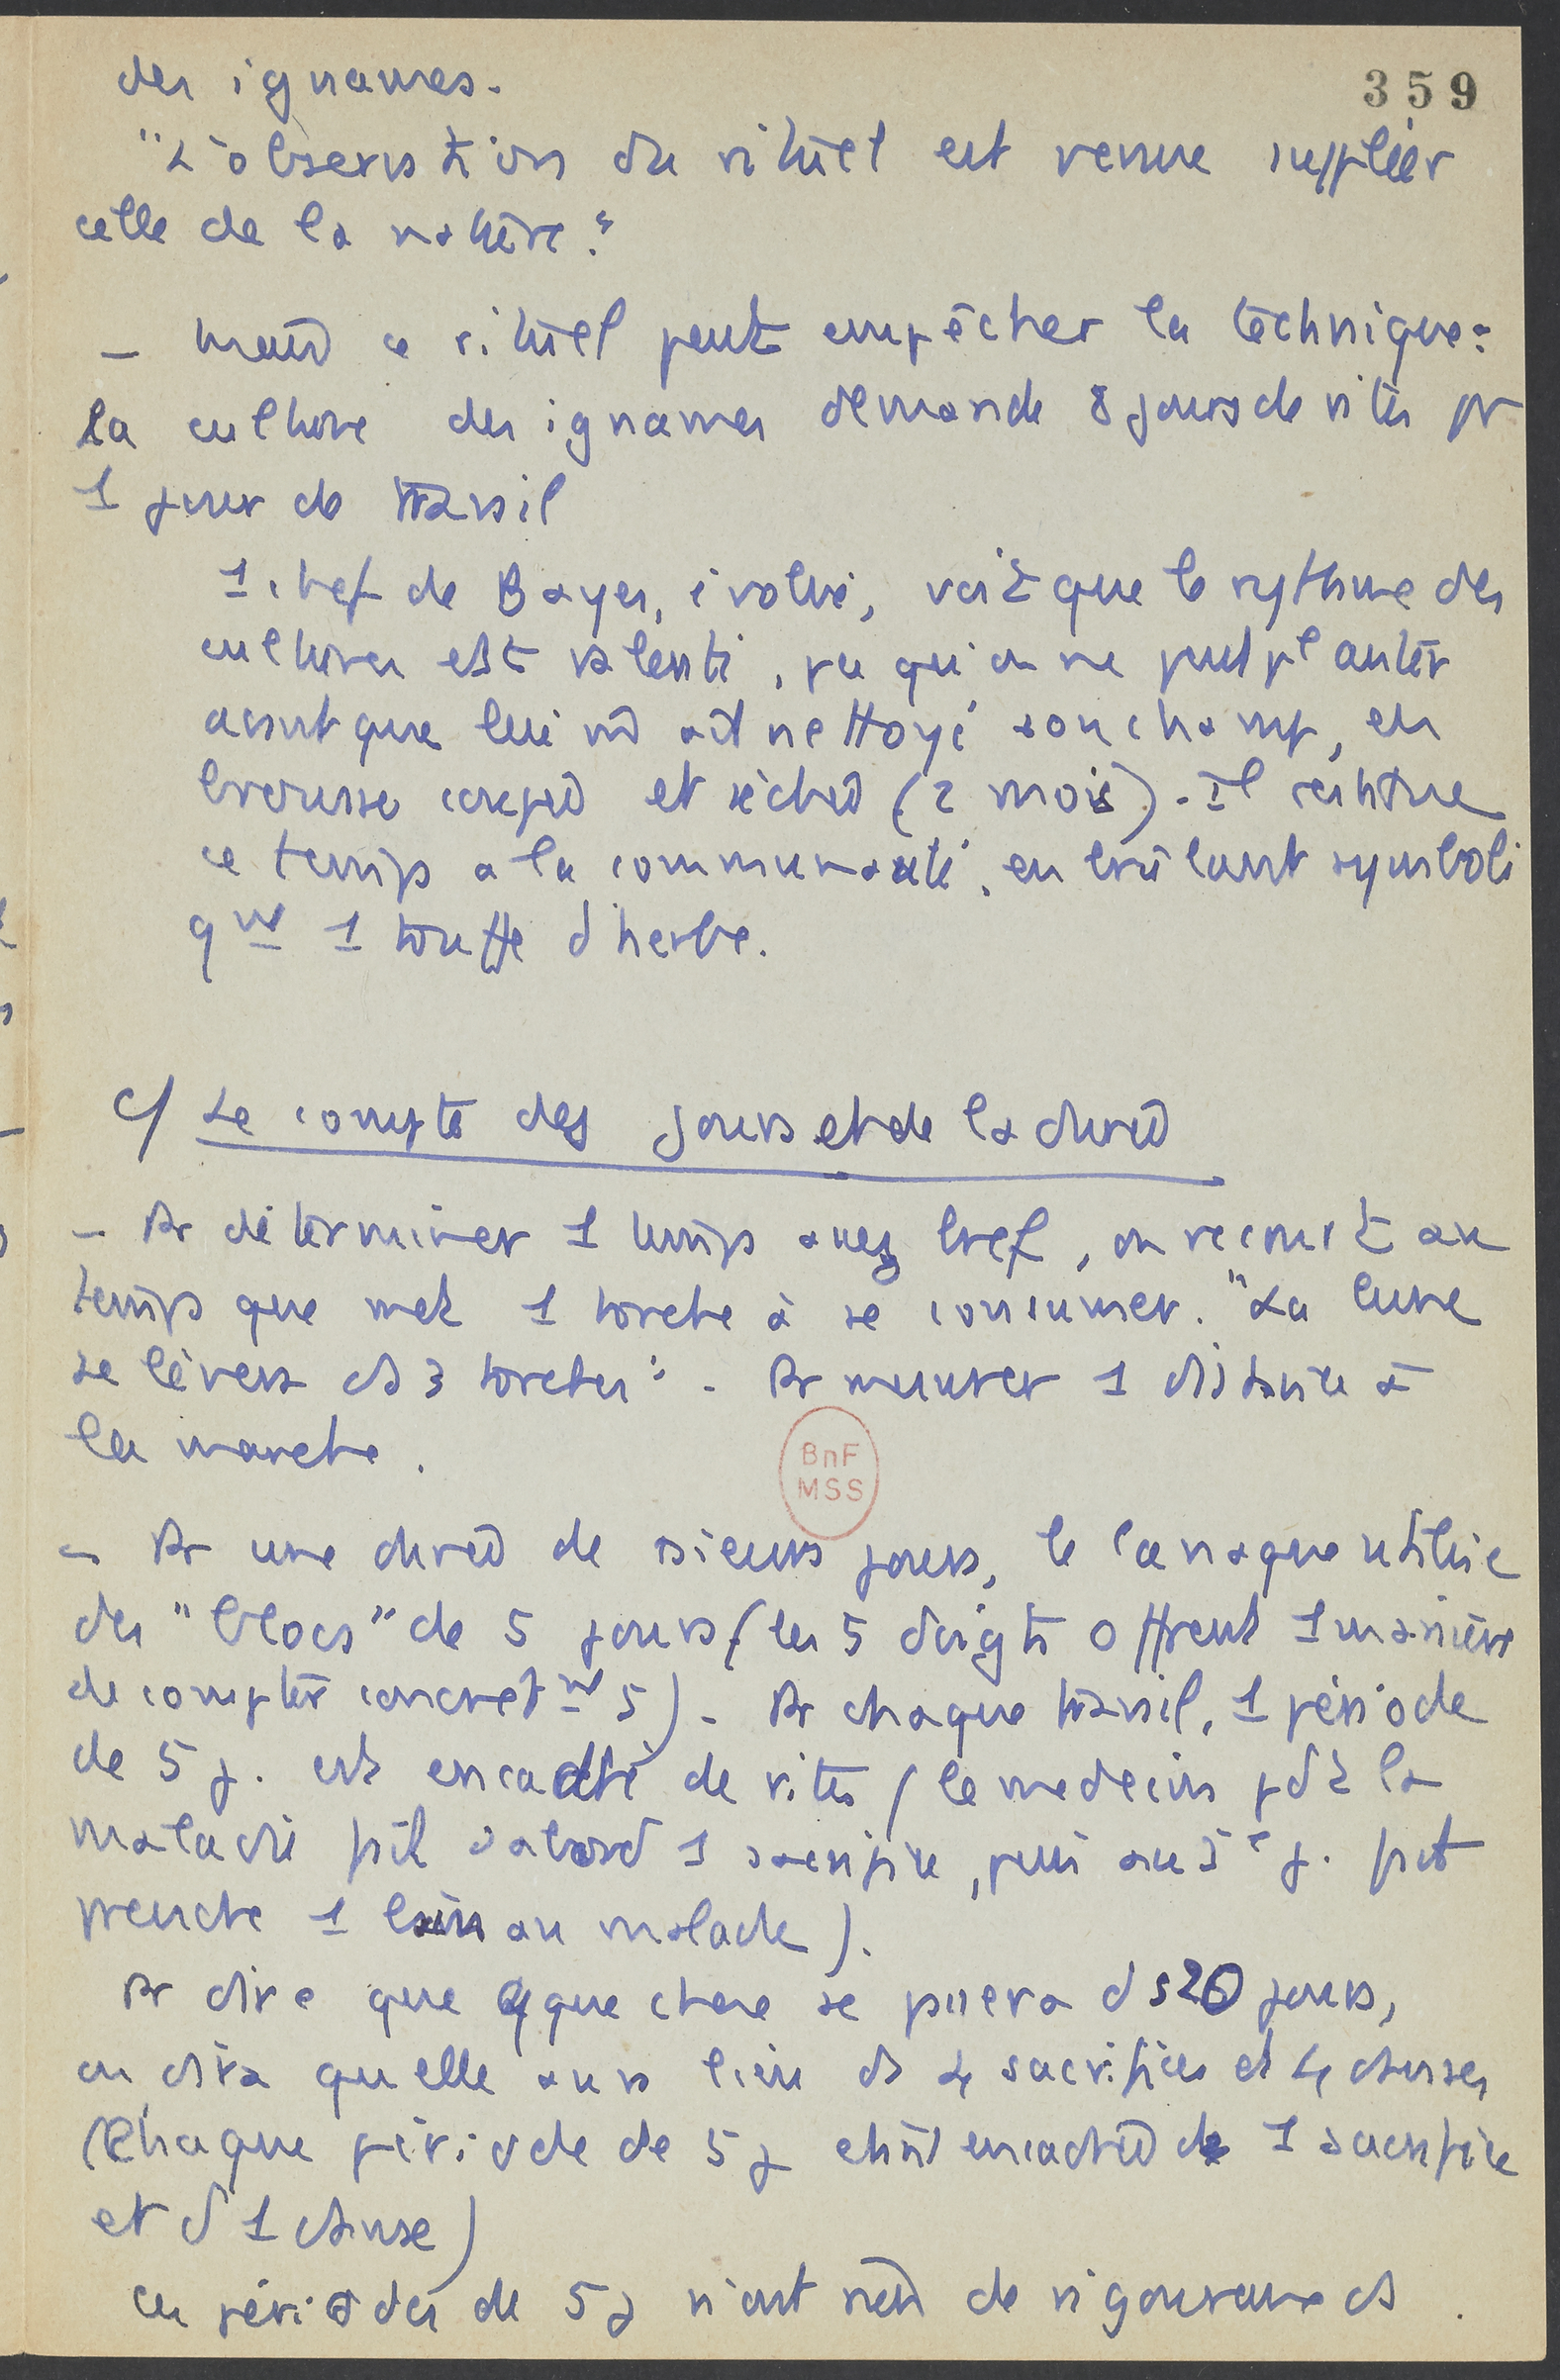 359
des ignames.
"L'observation du rituel est venue suppléer
celle de la nature."
- mais ce rituel peut empêcher la technique :
la culture des ignames demande 8 jours de rites pr
1 jour de travail
1 chef de Bayes, évolué, voit que le rythme des
cultures est ralenti, vu qu'on ne peut planter
avant que lui n'ait nettoyé son champ, en
brousse coupée et séchée (2 mois). Il restitue
ce temps à la communauté, en brûlant symboli
qnt 1 touffe d'herbe.
c/ Le compte des jours et de la durée
- Pr déterminer 1 temps assez bref, on recourt au
temps que met 1 torche à se consumer. "La lune
se lèvera ds 3 torches". Pr mesurer 1 distance à
la marche.
BnF
MSS
- Pr une durée de +sieurs jours, le Canaque utilise
des "blocs" de 5 jours (les 5 doigts offrent 1 manière
de compter concretmt 5). Pr chaque travail, 1 période
de 5 j. est encadrée de rites (le médecin pdt la
maladie fait d'abord 1 sacrifice, puis au 5e j. fait
prendre 1 bain au malade).
Pr dire que qque chose se passera ds 20 jours,
on dira quelle aura lieu ds 4 sacrifices et 4 danses
(Chaque période de 5 j étant encadrée de 1 sacrifice
et d'1 danse)
Ces périodes de 5 j n'ont rien de rigoureux ds